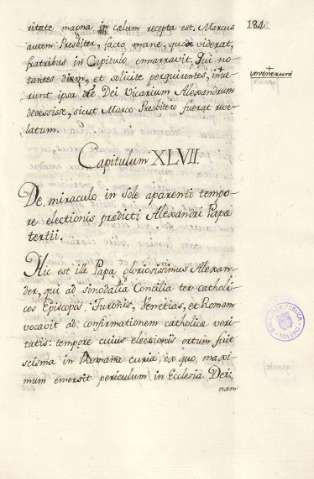 ritate magna in cælum recepta est. Marcus
autem Presbiter, facto mane, quæ viderat,
fratribus in Capitulo ennarravit. Qui no-
tantes diem, et solicite perquirentes, inve-
runt ipsa die Dei Vicarium Alexandrum
decessisse, sicut Marco Presbitero fuerat reve-
latum.
Capitulum XLVII.
De miraculo in Sole aparenti tempo-
re electionis predicti Alexandri Papæ
tertii.
Hic est ille Papa gloriosissimus Alexan-
der, qui ad sinodalia Concilia ter catholi-
cos Episcopos Turonis, Venetias, et Romam
vocavit ad confirmationem catholicæ veri-
tatis: tempore cuius electionis ortum fuit
scisma in Romana curia, ex quo maxi-
mum emersit periculum in Ecclesia Dei:
nam
184